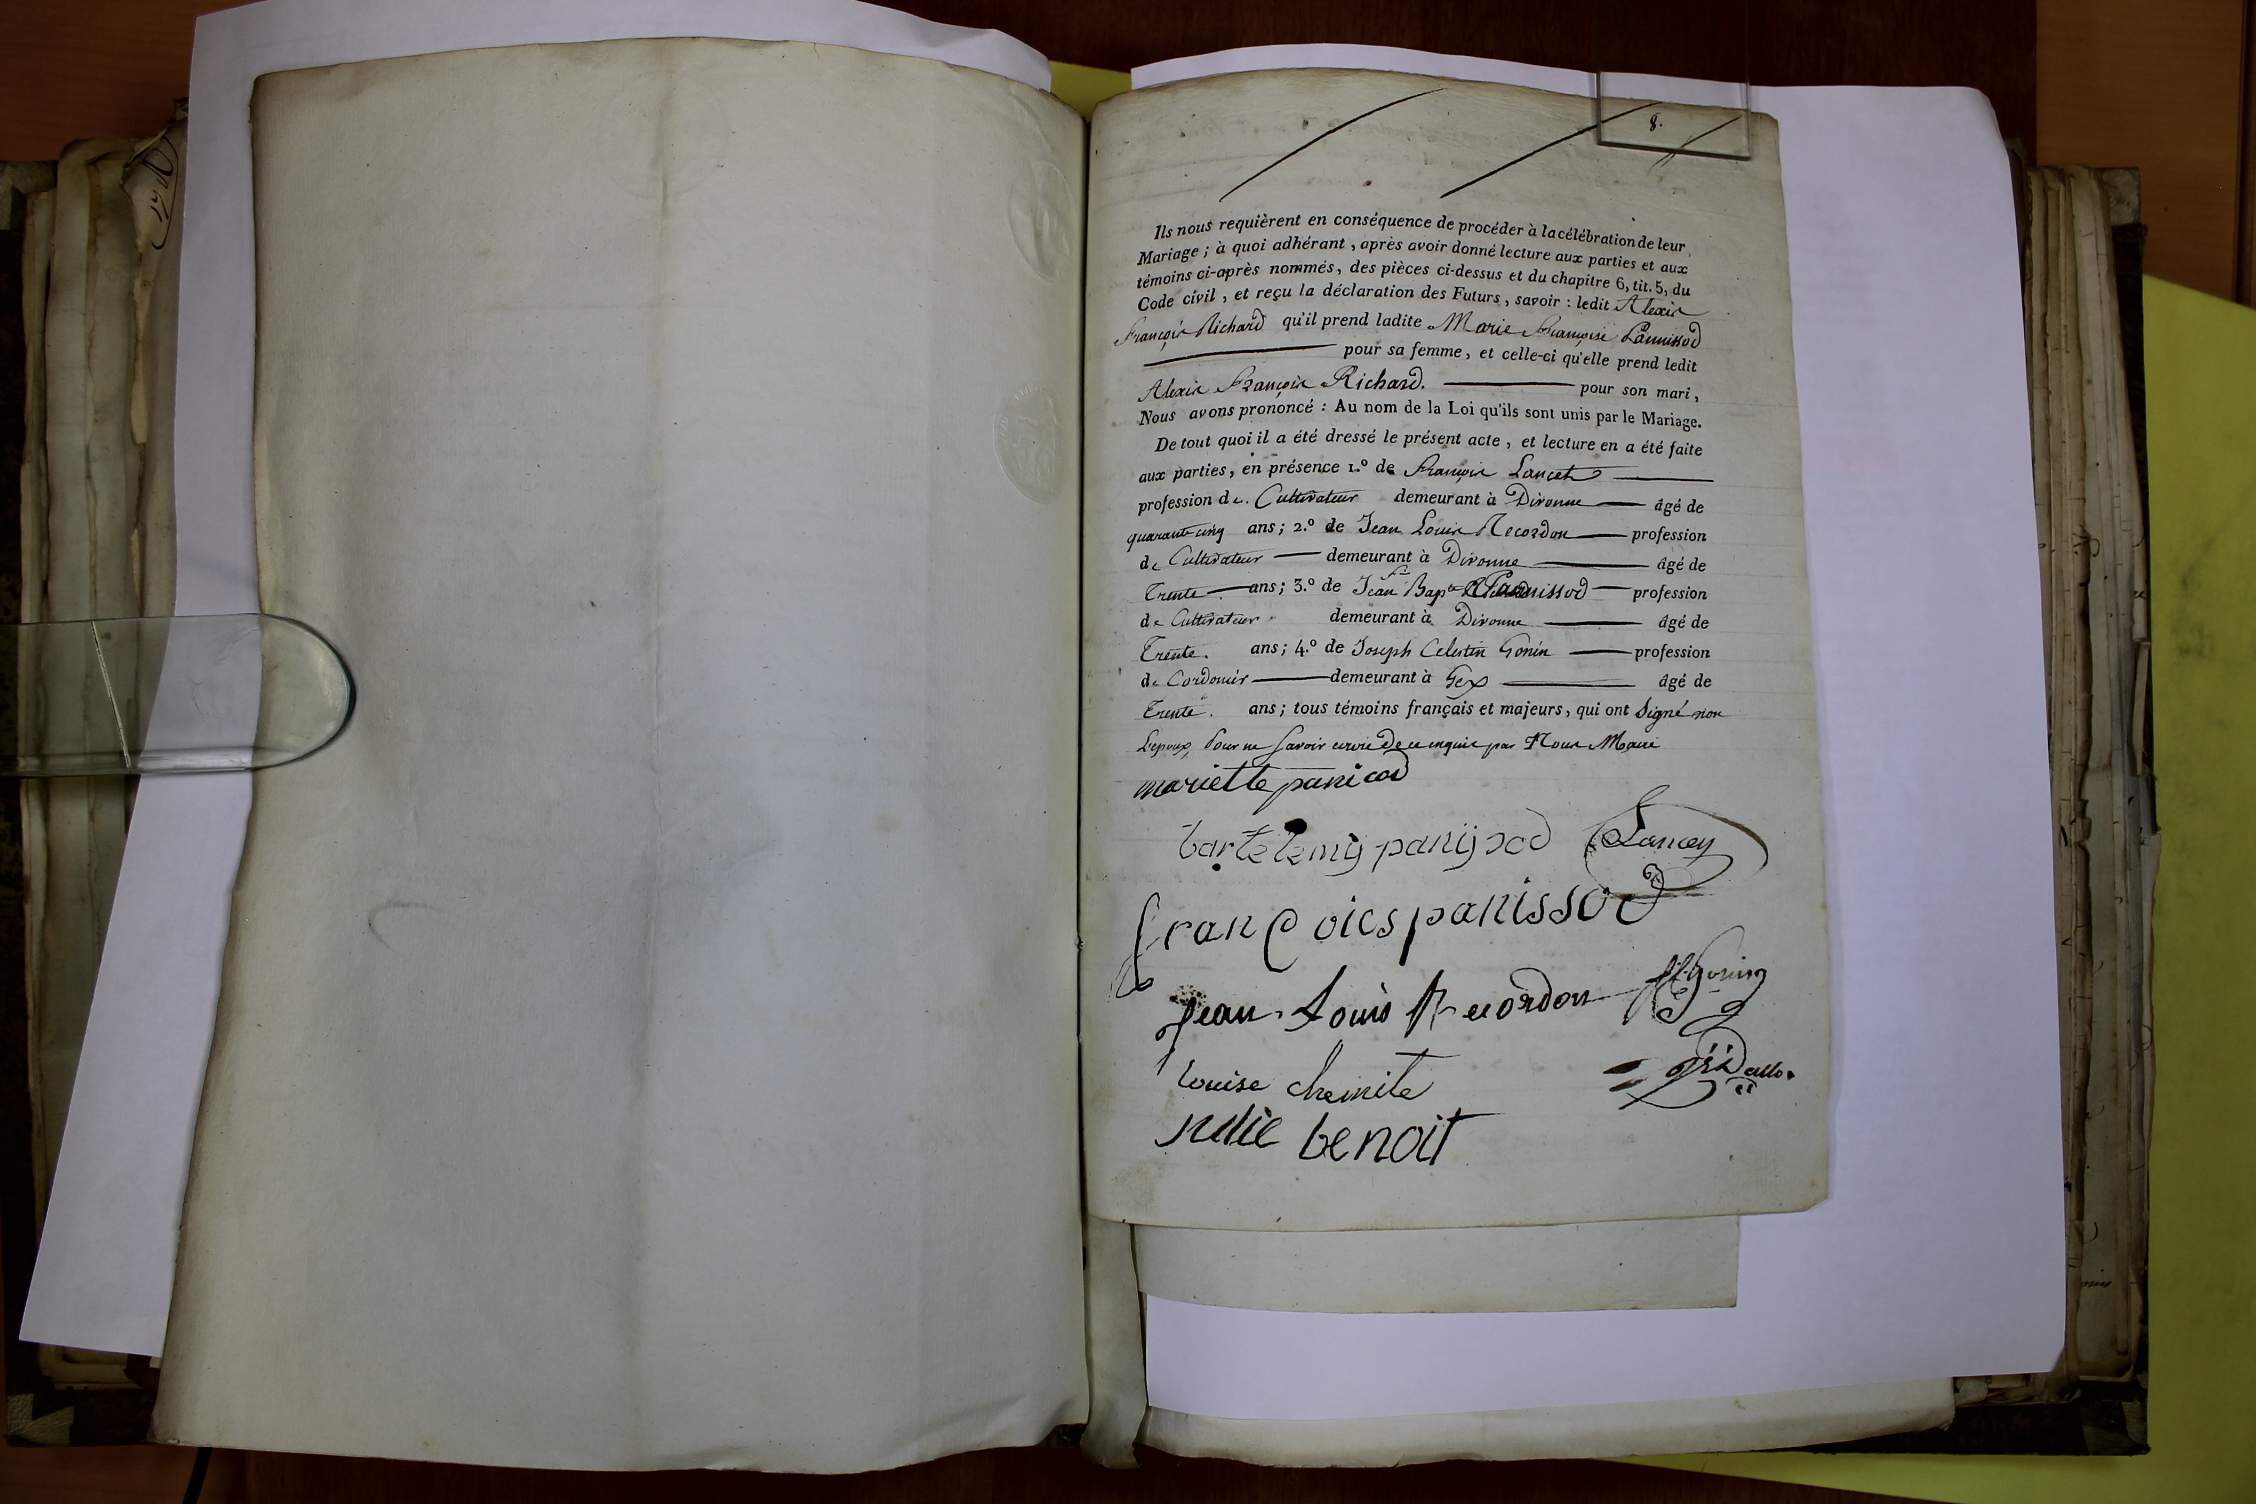 8.
Ils nous requièrent en conséquence de procéder à la célébration de leur
Mariage ; à quoi adhérant , après avoir donné lecture aux parties et aux
témoins ci-après nommés, des pièces ci-dessus et du chapitre 6, tit. 5, du
Code civil , et reçu la déclaration des Futurs , savoir : ledit Alexis
François Richard qu'il prend ladite Marie Françoise Pannissod
pour sa femme, et celle-ci qu'elle prend ledit
Alexis François Richard. pour son mari,
Nous avons prononcé : Au nom de la Loi qu'ils sont unis par le Mariage.
De tout quoi il a été dressé le présent acte , et lecture en a été faite
aux parties, en présence 1.º de François Lancet
profession de Cultivateur demeurant à Divonne âgé de
quarante cinq ans ; 2.º de Jean Louis Recordon profession
de Cultivateur demeurant à Divonne âgé de
Trente ans ; 3.º de Jean Bapte Pannissod profession
de Cultivateur demeurant à Divonne âgé de
Trente. ans ; 4.º de Joseph Celestin Gonin profession
de Cordonier demeurant à Gex âgé de
Trente. ans ; tous témoins français et majeurs, qui ont Signé non
Lepoux pour ne Savoir ecrire de ce enquis par Nous Maire
mariette panicod
bartelemy panijsod Lancey
françoics panissod
Jean Louis Recordon Gonin
louise chemite
Julie benoit